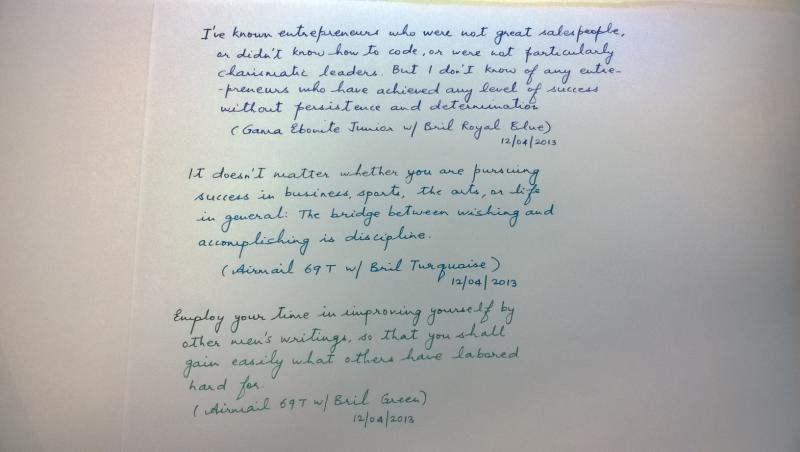 I've known entrepreneurs who were not great salespeople,
or didn't know how to code, or were not particularly
charismatic leaders. But I don't know of any entre-
-preneurs who have achieved any level of success
without persistence and determination
(Gama Ebonite Junior w/ Bril Royal Blue)
12/04/2013
It doesn't matter whether you are pursuing
success in business, sports, the arts, or life
in general: The bridge between wishing and
accomplishing is discipline.
(Airmail 69T w/ Bril Turquoise)
12/04/2013
Employ your time in improving yourself by
other men's writings, so that you shall
gain easily what others have labored
hard for.
(Airmail 69T w/ Bril Green)
12/04/2013